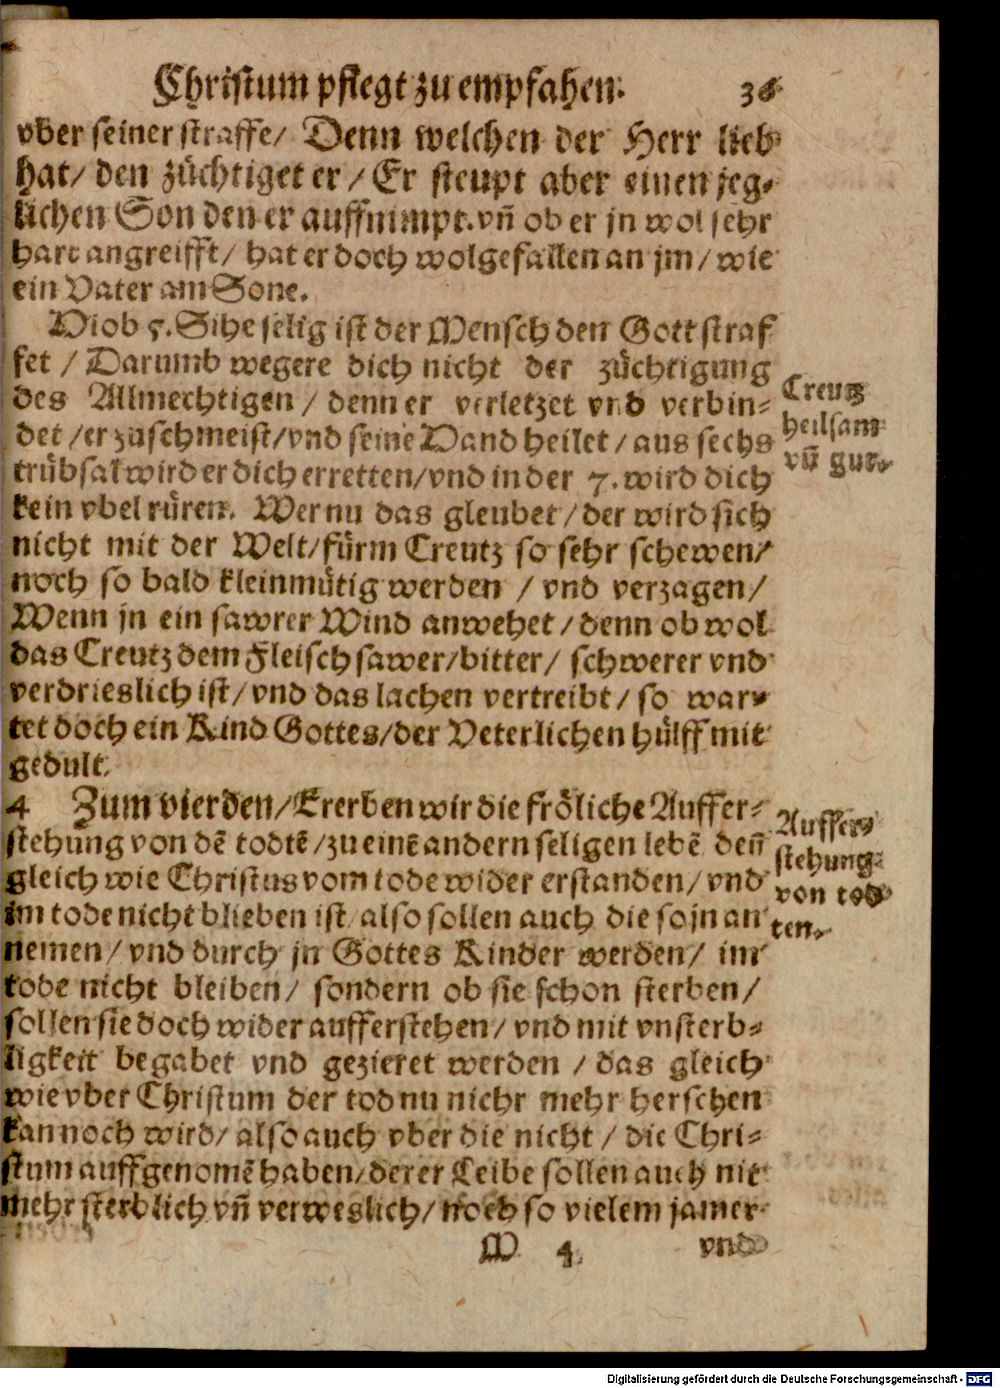 Christum pflegt zu empfahen.
vber seiner straffe/ Denn welchen der Herr lieb
hat/ den züchtiget er/ Er steupt aber einen jeg-
lichen Son den er auffnimpt. vñ ob er jn wol sehr
hart angreifft/ hat er doch wolgefallen an jm/ wie
ein Vater am Sone.
Hiob 5. Sihe selig ist der Mensch den Gott straf
fet / Darumb wegere dich nicht der züchtigung
des Allmechtigen / denn er verletzet vnd verbin-
det /er zuschmeist/vnd seine Hand heilet/ aus sechs
trübsal wird er dich erretten/vnd in der 7. wird dich
kein vbel rüren. Wer nu das gleubet/ der wird sich
nicht mit der Welt/fürm Creutz so sehr schewen/
noch so bald kleinmütig werden / vnd verzagen/
Wenn jn ein sawrer Wind anwehet/ denn ob wol
das Creutz dem Fleisch sawer/bitter/ schwerer vnd
verdrieslich ist/ vnd das lachen vertreibt/ so war-
tet doch ein Kind Gottes/der Veterlichen hülff mit
gedult.
Creutz
heilsam
vñ gut.
4 Zum vierden/ Ererben wir die fröliche Auffer-
stehung von dẽ todtẽ/zu einẽ andern seligen lebẽ deñ
gleich wie Christus vom tode wider erstanden/ vnd
im tode nicht blieben ist/ also sollen auch die so jn an
nemen/ vnd durch jn Gottes Kinder werden/ im
tode nicht bleiben/ sondern ob sie schon sterben/
sollen sie doch wider aufferstehen/ vnd mit vnsterb-
ligkeit begabet vnd gezieret werden / das gleich
wie vber Christum der tod nu nicht mehr herschen
kan noch wird/ also auch vber die nicht / die Chri-
stum auffgenomẽ haben/derer Leibe sollen auch nit
mehr sterblich vñ verweslich/ noch so vielem jamer
Auffer-
stehung
von tod
ten.
M 4 vnd
Digitalisierung gefördert durch die Deutsche Forschungsgemeinschaft - DFG